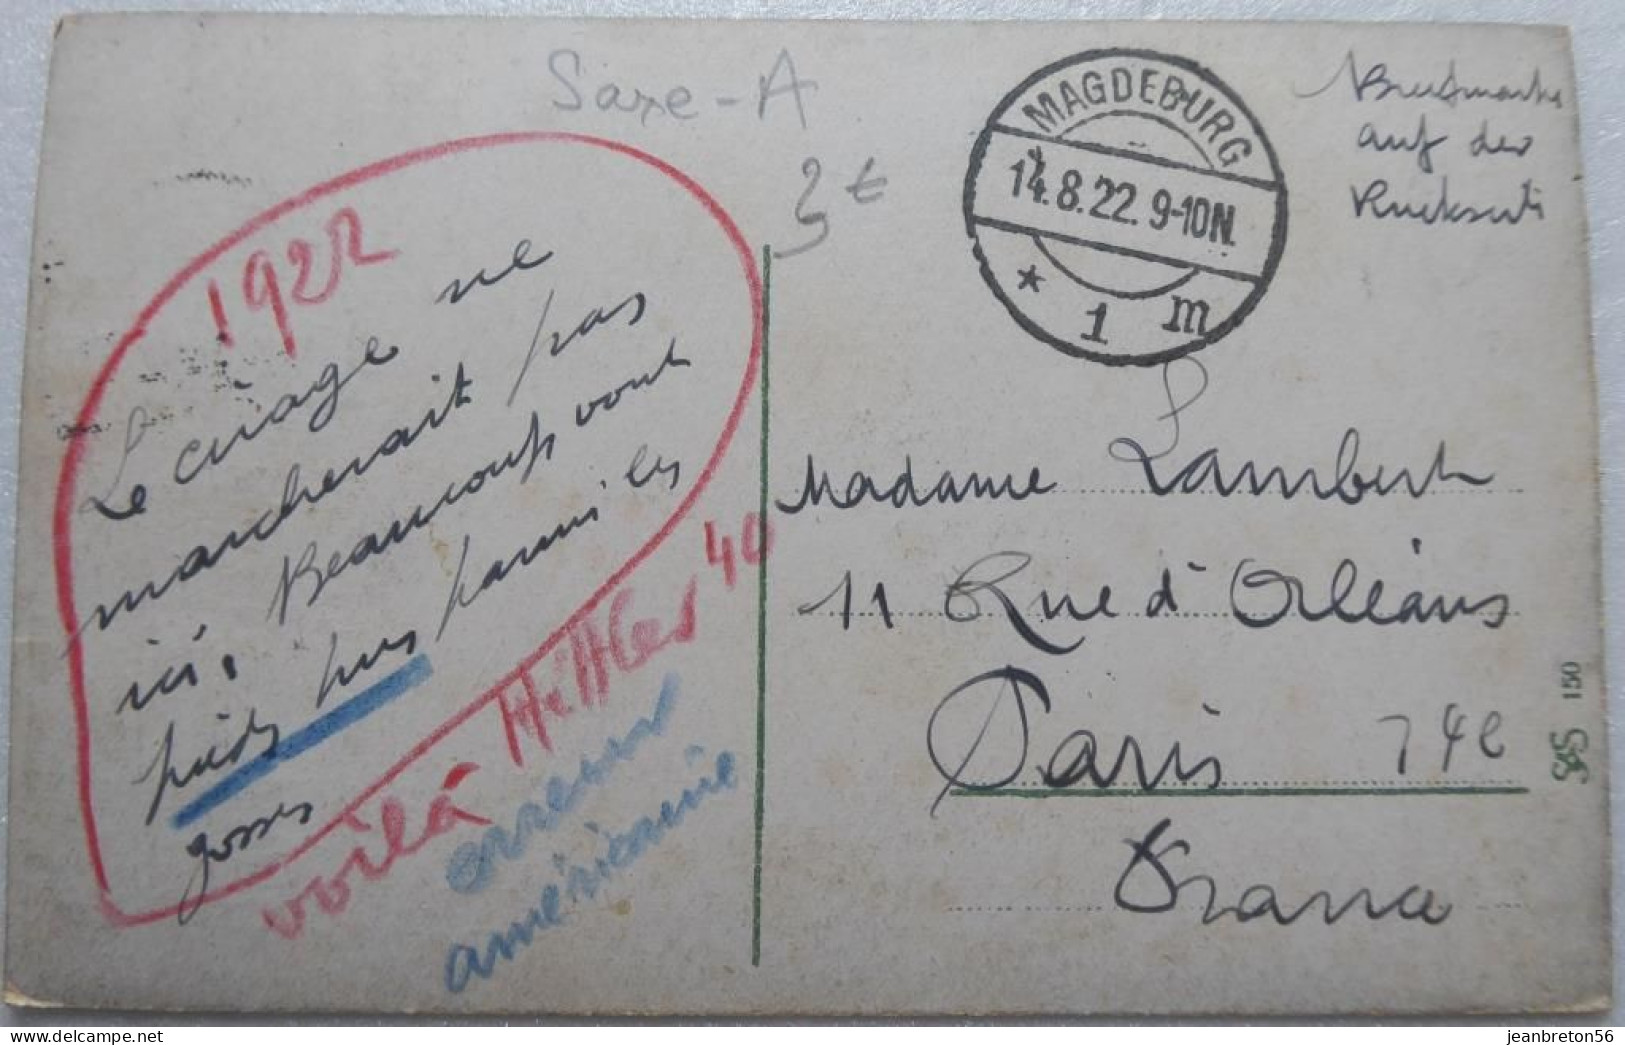 Saxe-A
3 €
MAGDEBURG
14.8.22. 9-10N.
* 1 m
Briefmarke
auf der
Rückseite
1922
Le cirage ne
marcherait pas
ici. Beaucoup vont
pieds nus parmi les
gosses
voilà Hittler 40
erreur
américaine
Madame Lambert
11 Rue d'Orléans
Paris 14e
France
S&S 150
jeanbreton56